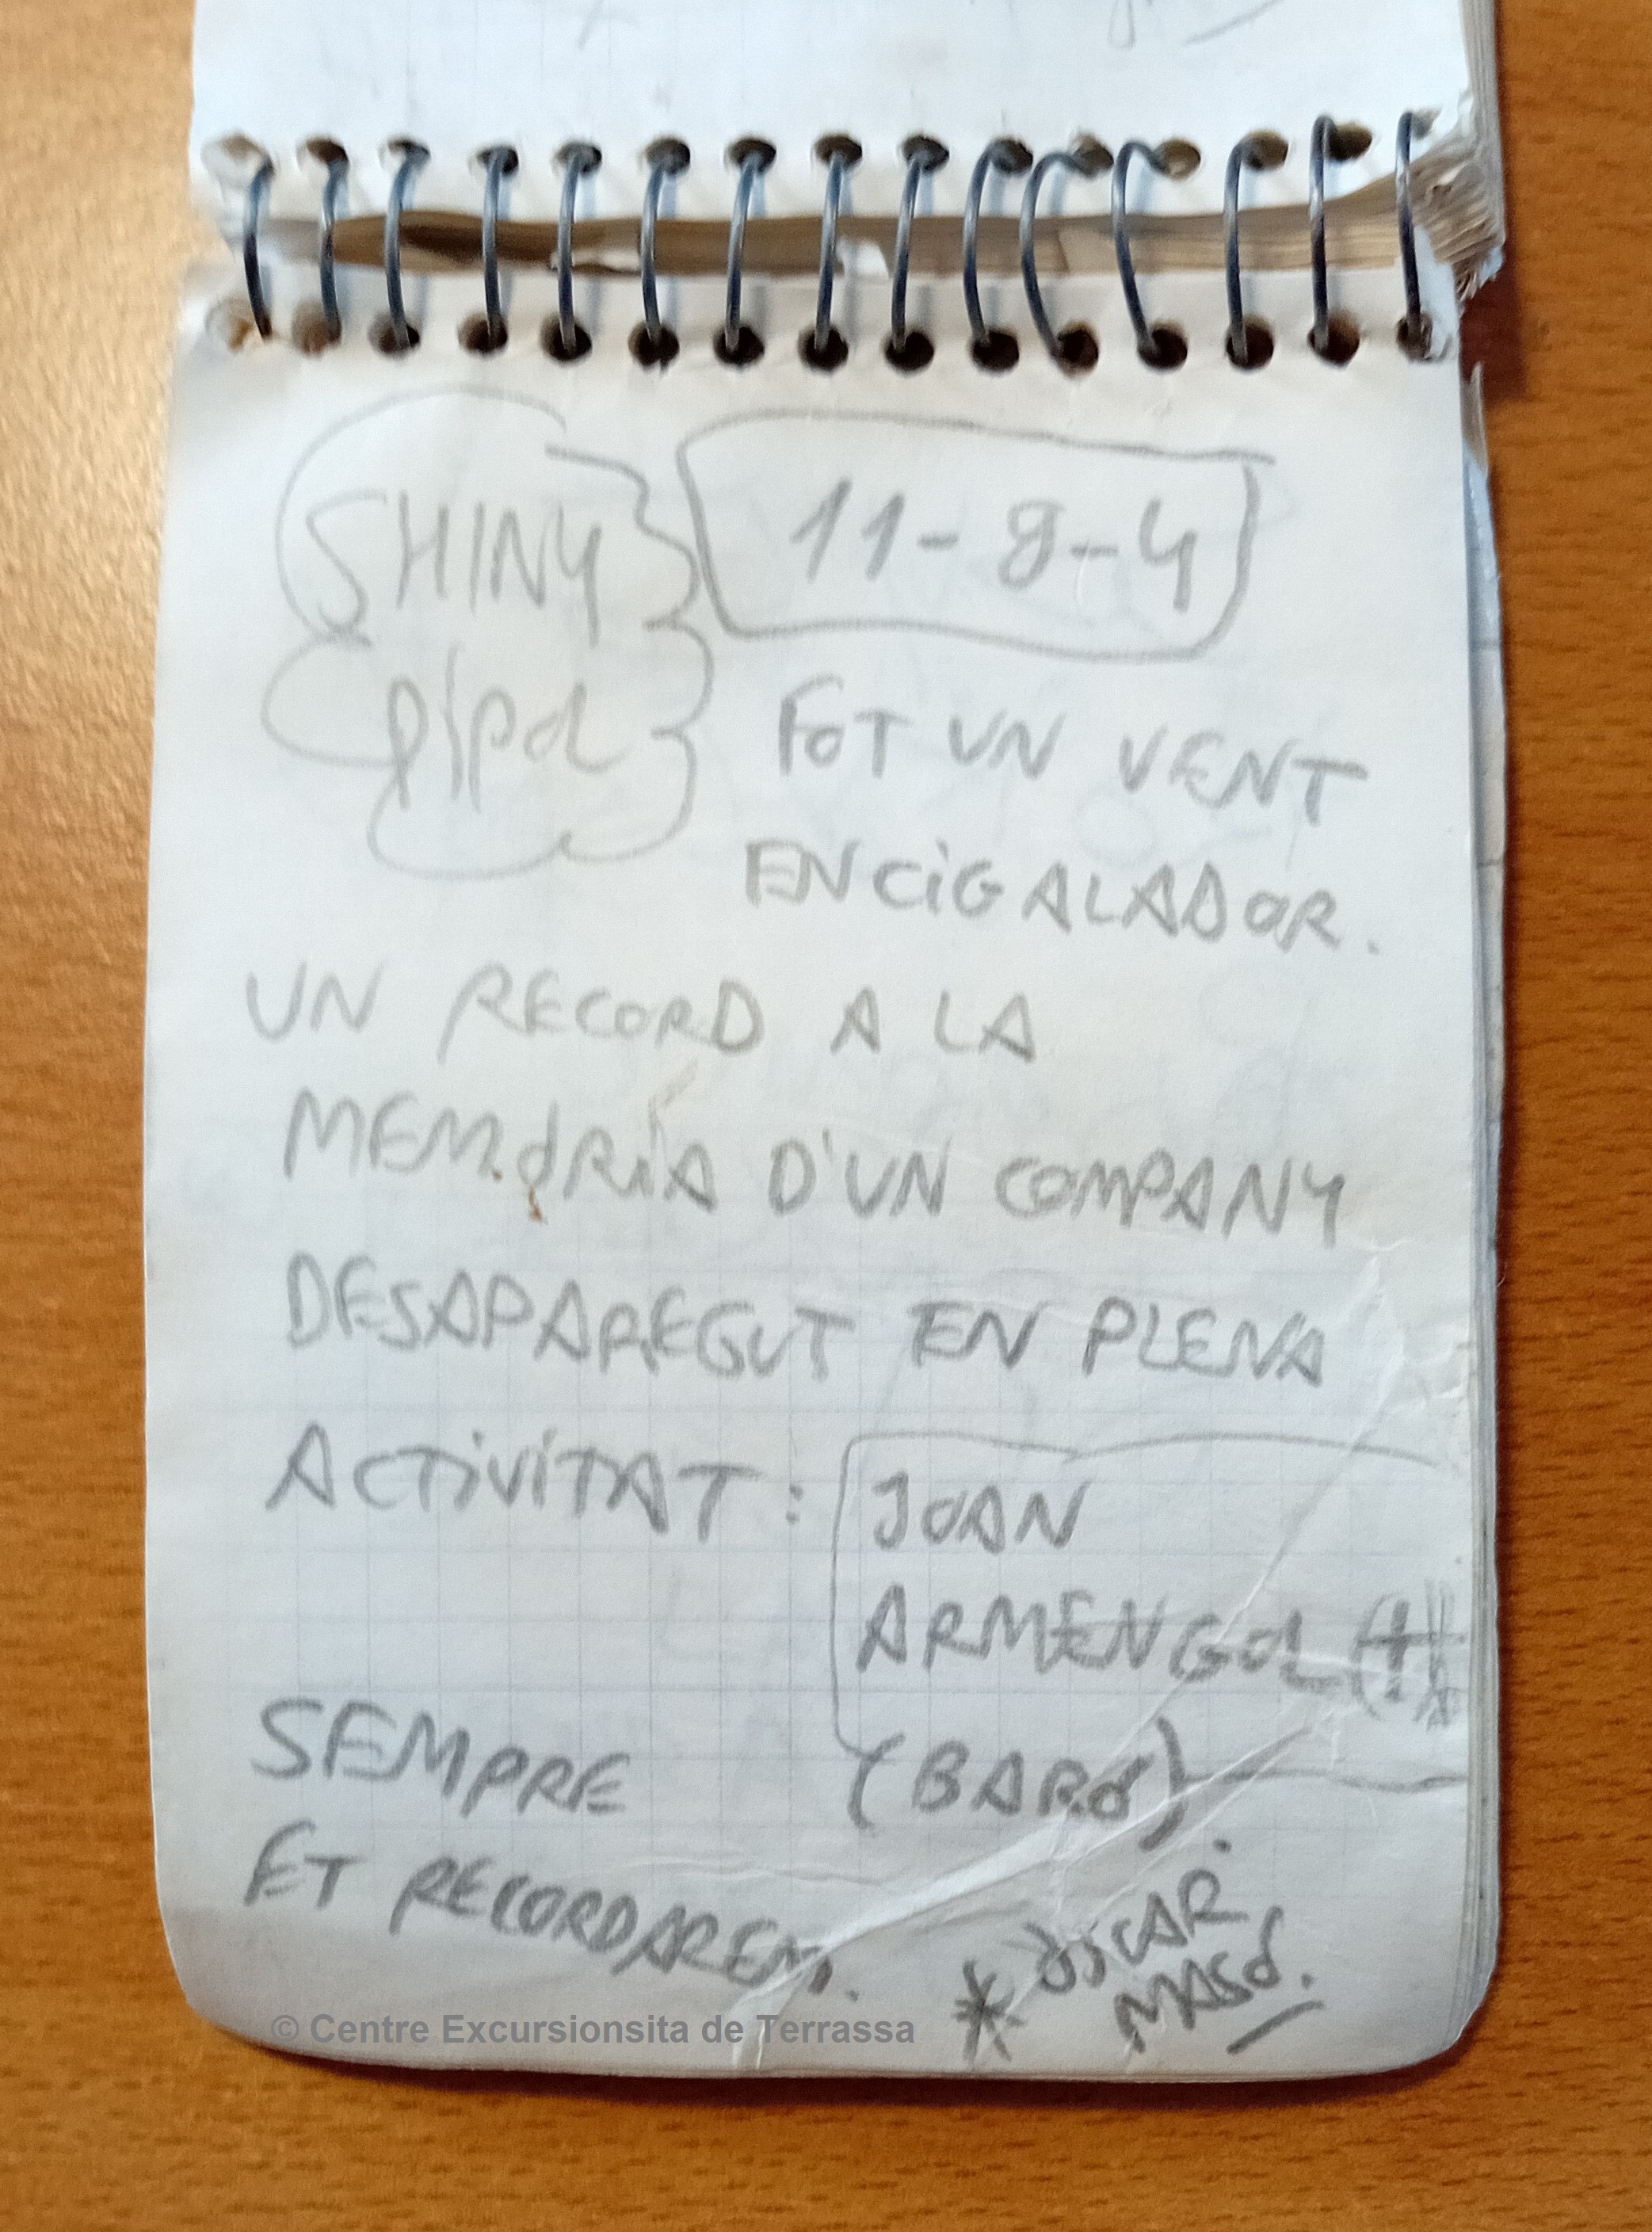 SHINY
pipa
11-8-4
FOT UN VENT
ENCIGALADOR.
UN RECORD A LA
MEMÒRIA D'UN COMPANY
DESAPAREGUT EN PLENA
ACTIVITAT: JOAN
ARMENGOL (†)
(BARÓ)
SEMPRE
ET RECORDAREM.
* ÒSCAR
MASÓ.
© Centre Excursionsita de Terrassa